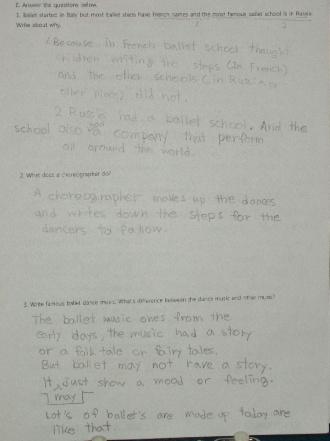 E. Answer the questions below.
1. Ballet started in Italy but most ballet steps have french names and the most famous ballet school is in Russia.
Write about why.
1 2
1. Because in French ballet school thought
children writing the steps (in French)
and the other schools (in Russia or
other places) did not.
2. Russia had a ballet school. And the
school also had a company that perform
all around the world.
2. What does a choreographer do?
A choreographer makes up the dances
and writes down the steps for the
dancers to follow.
3. Write famous ballet dance music. What's difference between the dance music and other music?
The ballet music ones from the
early days, the music had a story
or a folk tale or fairy tales.
But ballet may not have a story.
It just show a mood or feeling.
may
Lot's of ballet's are made up today are
like that.